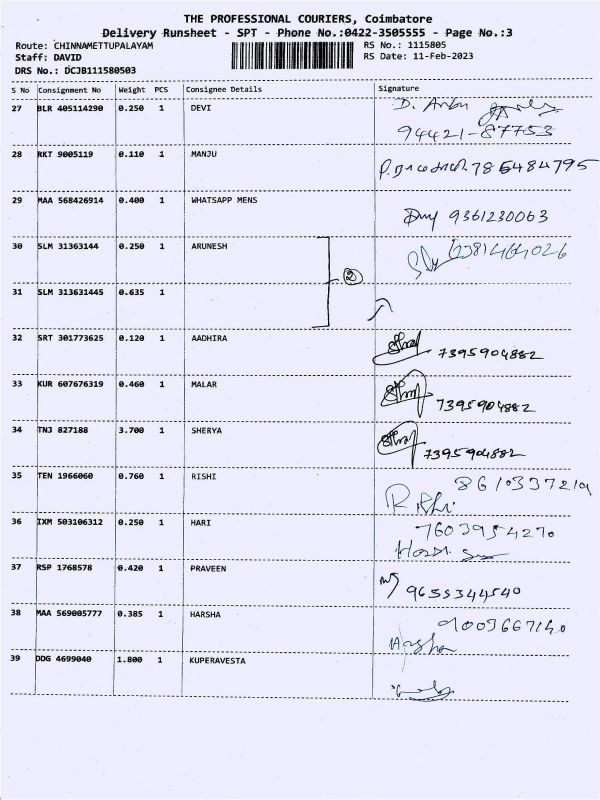 THE PROFESSIONAL COURIERS, Coimbatore
Delivery Runsheet - SPT - Phone No.:0422-3505555 - Page No.:3
Route: CHINNAMETTUPALAYAM RS No.: 1115805
Staff: DAVID RS Date: 11-Feb-2023
DRS No.: DCJB111580503
S No Consignment No Weight PCS Consignee Details Signature
27 BLR 405114290 0.250 1 DEVI
94421-87753
28 RKT 9005119 0.110 1 MANJU
29 MAA 568426914 0.400 1 WHATSAPP MENS
9361230063
30 SLM 31363144 0.250 1 ARUNESH
2
31 SLM 313631445 0.635 1
32 SRT 301773625 0.120 1 AADHIRA
7395904882
33 KUR 607676319 0.460 1 MALAR
7395904882
34 TNJ 827188 3.700 1 SHERYA
7395904882
35 TEN 1966060 0.760 1 RISHI
Rishi
36 IXM 503106312 0.250 1 HARI
7603954270
37 RSP 1768578 0.420 1 PRAVEEN
9655344540
38 MAA 569005777 0.385 1 HARSHA
9003667140
Harsha
39 DDG 4699040 1.800 1 KUPERAVESTA